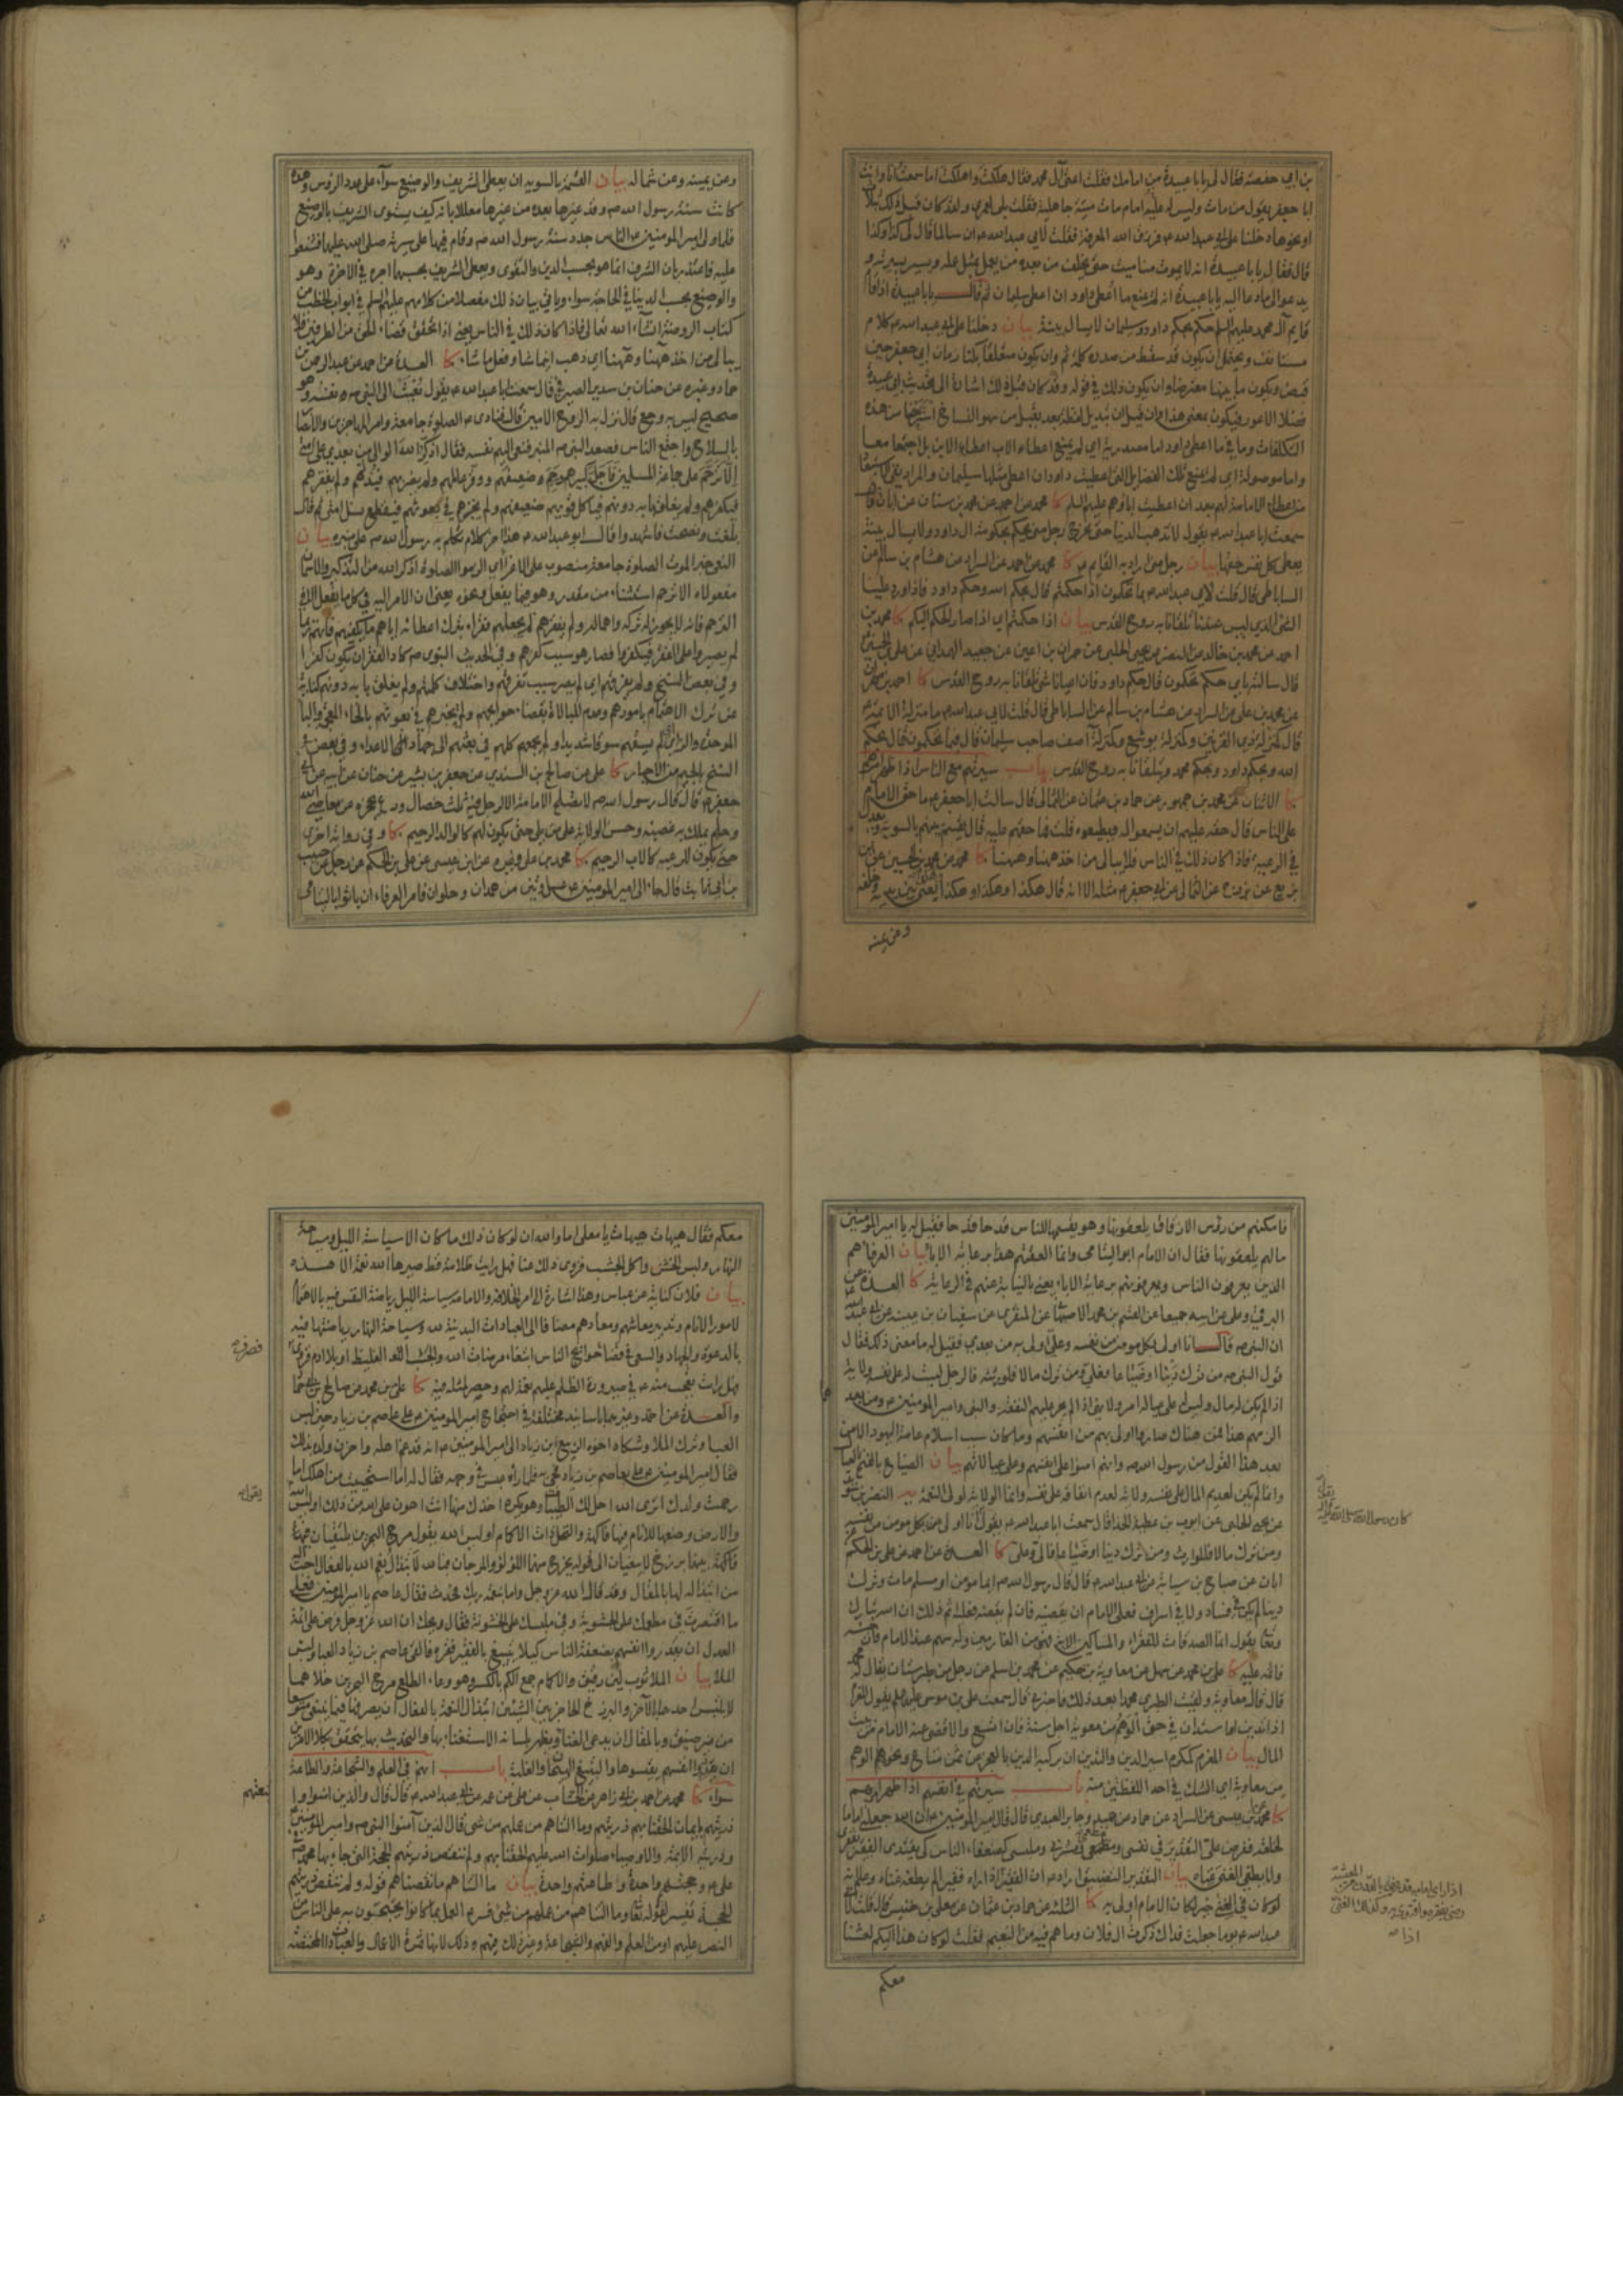 بن أبي حفصة فقال لي يا با عبيدة من امامك فقلت ائمتي آل محمد فقال هلكت واهلكت اما سمعت انا وانت
ابا جعفر يقول من مات وليس له عليه امام مات ميتة جاهلية فقلت بلى لعمري ولقد كان قبل ذلك بثلاث
او نحوها دخلنا على ابي عبد الله ع فرزق الله المعرفة فقلت لابي عبد الله ع ان سالما قال لي كذا وكذا
قال فقال يا با عبيدة انه لا يموت منا ميت حتى يخلف من بعده من يعمل بمثل عمله ويسير بسيرته و
يدعو الى ما دعا اليه يا با عبيدة انه لم يمنع ما اعطي داود ان اعطى سليمان ثم قال يا با عبيدة اذا قام
قايم آل محمد عليهم السلم حكم بحكم داود وسليمان لا يسال بينة بيان دخلنا على ابي عبد الله ع كلام
مستانف ويحتمل ان يكون قد سقط من صدره كلمة ثم وان يكون متعلقا بكنا زمان ابي جعفر حين
قبض ويكون ما بينهما معترضا وان يكون ذلك في قوله وقد كان قبل ذلك اشارة الى تحديث ابي عبيدة
التكلفات وما في ما اعطي داود اما مصدرية اي لم يمنع اعطاء الاب اعطاء الابن بل اجتمعا معا
واما موصولة اي لم يمنع تلك الفضايل التي اعطيت داود ان اعطي مثلها سليمان
من اعطاء الامامة لهم بعد ان اعطيت اباؤهم عليهم السلم كا محمد عن احمد عن محمد بن سنان عن ابان قال
سمعت ابا عبد الله ع يقول لا تذهب الدنيا حتى يخرج رجل مني يحكم بحكومة ال داود ولا يسال بينة
يعطي كل نفس حقها بيان رجل مني اراد به القايم ع كا محمد عن احمد عن السراد عن هشام بن سالم عن
الساباطي قال قلت لابي عبد الله ع بما تحكمون اذا حكمتم قال بحكم الله وحكم داود فاذا ورد علينا
الشئ الذي ليس عندنا تلقانا به روح القدس بيان اذا حكمتم اي اذا صار الحكم اليكم كا محمد بن
احمد عن محمد بن خالد عن النضر عن يحيى الحلبي عن حمران بن اعين عن جعيد الهمداني عن علي بن الحسين
قال سالته باي حكم تحكمون قال حكم داود فان اعيانا شئ تلقانا به روح القدس كا احمد بن مهران
عن محمد بن علي عن السراد عن هشام بن سالم عن الساباطي قال قلت لابي عبد الله ع ما منزلة الائمة ع
قال كمنزلة ذي القرنين وكمنزلة يوشع وكمنزلة آصف صاحب سليمان قال فبما تحكمون قال بحكم
الله وبحكم داود وبحكم محمد ويتلقانا به روح القدس باب سيرتهم مع الناس اذا ظهر امرهم
كا الاثنان عن محمد بن جمهور عن حماد بن عثمان عن الثمالي قال سالت ابا جعفر ع ما حق الامام
على الناس قال حقه عليهم ان يسمعوا له ويطيعوه قلت فما حقهم عليه قال يقسم بينهم بالسوية ويعدل
في الرعية فاذا كان ذلك في الناس فلا يبالي من اخذ ههنا وههنا كا محمد عن محمد بن الحسين عن ابن
بزيع عن بزرج عن الثمالي عن ابي جعفر ع مثله الا انه قال هكذا وهكذا وهكذا وهكذا يعني بين يديه وخلفه
وعن يمينه
وعن يمينه وعن شماله بيان القسمة بالسوية ان يعطي الشريف والوضيع سواء على عدد الرؤس وهذه
كانت سنة رسول الله ص وقد غيرها بعده من غيرها معللا بانه كيف يستوى الشريف بالوضيع
فلما ولى امير المؤمنين ع الناس جدد سنة رسول الله ص وقام فيها على سيرته صلى الله عليهما فشنعوا
عليه فاعتذر بان الشرف انما هو بحسب الدين والتقوى ويعطى الشريف بحسبهما اجره في الاخرة وهو
والوضيع بحسب الدنيا في الحاجة سواء وياتي بيان ذلك مفصلا من كلامهم عليهم السلم في ابواب الخطب من
كتاب الروضة انشاء الله تعالى فاذا كان ذلك في الناس يعني اذا تحقق قضاء الحق من الطرفين فلا
يبالي من اخذ ههنا وههنا اي ذهب اينما شاء وفعل ما شاء كا العدة عن احمد عن عبد الرحمن بن
حماد وغيره عن حنان بن سدير الصيرفي قال سمعت ابا عبد الله ع يقول نعيت الى النبي ص نفسه وهو
صحيح ليس به وجع قال نزل به الروح الامين قال فنادى ص الصلوة جامعة وامر المهاجرين والانصار
بالسلاح واجتمع الناس فصعد النبي ص المنبر فنعى اليهم نفسه فقال اذكر الله الوالي من بعدي على امتي
الا ترحم على جماعة المسلمين فاجل كبيرهم ورحم ضعيفهم ووقر عالمهم ولم يضر بهم فيذلهم ولم يفقرهم
فيكفرهم ولم يغلق بابه دونهم فياكل قويهم ضعيفهم ولم يخبزهم في بعوثهم فيقطع نسل امتي ثم قال
بلغت ونصحت فاشهدوا قال ابو عبد الله ع هذا اخر كلام تكلم به رسول الله ص على منبره بيان
النعي خبر الموت الصلوة جامعة منصوب على الاغراء اي الزموا الصلوة اذكر الله من التذكير والاسمان
مفعولاه الا ترحم استثناء من مقدر
لم يصبروا على الفقر فيكفروا فصار هو سبب كفرهم وفي الحديث النبوي ص كاد الفقر ان يكون كفرا
عن ترك الاهتمام بامورهم وعدم المبالاة بقضاء حوايجهم ولم يخبزهم في بعوثهم بالخاء المعجمة والباء
الموحدة والزاي لم يسقهم سوقا شديدا ولم يجمعهم كلهم في بعثهم الى الاعداء وفي بعض
النسخ بالجيم من الاجبار كا علي عن صالح بن السندي عن جعفر بن بشير عن حنان عن ابيه عن ابي
جعفر ع قال قال رسول الله ص لا تصلح الامامة الا لرجل فيه ثلث خصال ورع يحجزه عن معاصي الله
وحلم يملك به غضبه وحسن الولاية على من يلي حتى يكون لهم كالوالد الرحيم كا وفي رواية اخرى
حتى يكون للرعية كالاب الرحيم كا محمد بن علي وغيره عن ابن عيسى عن علي بن الحكم عن رجل عن حبيب
بن أبي ثابت قال جاء الى امير المؤمنين ع عسل وتين من همدان وحلوان فامر العرفاء ان ياتوا باليتامى
فامكنهم من رؤس الازقاق يلعقونها وهو يقسمها للناس قدحا قدحا فقيل له يا امير المؤمنين
ما لهم يلعقونها فقال ان الامام ابو اليتامى وانما العقتهم هذا برعاية الاباء بيان العرفاء هم
الذين يعرفون الناس ويعرفونهم برعاية الاباء يعني بالنيابة عنهم في الرعاية كا العدة عن
البرقي وعلي عن ابيه جميعا عن القسم بن محمد الاصبهاني عن المنقري عن سفيان بن عيينه عن ابي عبد الله
ان النبي ص قال انا اولى بكل مؤمن من نفسه وعلي اولى به من بعدي فقيل له ما معنى ذلك فقال
قول النبي ص من ترك دينا او ضياعا فعلي ومن ترك مالا فلورثته فالرجل ليست له على نفسه ولاية
اذا لم يكن له مال وليس له على عياله امر ولا نهي اذا لم يجر عليهم النفقة والنبي وامير المؤمنين ع ومن بعدهما
الزمهم هذا فمن هناك صاروا اولى بهم من انفسهم وما كان سبب اسلام عامة اليهود الا من
بعد هذا القول من رسول الله ص وانهم امنوا على انفسهم وعلى عيالاتهم بيان الضياع بالفتح العيال
وانما لم يكن لعديم المال على نفسه ولاية لعدم انفاقه على نفسه وانما الولاية لولي النعمة
عن يحيى الحلبي عن ايوب بن عطية الحذاء قال سمعت ابا عبد الله ع يقول انا اولى من بكل مؤمن من نفسه
ومن ترك مالا فللوارث ومن ترك دينا او ضياعا فالي وعلي كا العدة عن احمد عن علي بن الحكم عن
ابان عن صباح بن سيابة عن ابي عبد الله ع قال قال رسول الله ص ايما مؤمن او مسلم مات وترك
دينا لم يكن في فساد ولا في اسراف فعلى الامام ان يقضيه فان لم يقضه فعليه اثم ذلك ان الله تبارك
وتعالى يقول انما الصدقات للفقراء والمساكين الاية فهو من الغارمين وله سهم عند الامام فان حبسه
فاثمه عليه كا علي بن محمد عن سهل عن معاوية بن حكيم عن محمد بن اسلم عن رجل من طبرستان يقال له محمد
قال قال معاوية ولقيت الطبري محمدا بعد ذلك فاخبرني قال سمعت علي بن موسى عليه السلم يقول المغرم
اذا تدين او استدان في حق الوهم من معوية اجل سنة فان اتسع والا قضى عنه الامام من بيت
المال بيان المغرم كمكرم اسير الدين والتدين ان يركبه الدين
من معاوية اي الشك في احد اللفظين منه باب سيرتهم في انفسهم اذا ظهر امرهم
كا محمد عن ابن عيسى عن السراد عن حماد عن حميد وجابر العبدي قال قال امير المؤمنين ع ان الله جعلني اماما
لخلقه ففرض علي التقدير في نفسي ومطعمي ومشربي وملبسي كضعفاء الناس كي يقتدي الفقير بفقري
ولا يطغي الغني غناه بيان التقدير التضييق اراد ع ان الفقير اذا راه
عبد الله ع يوما جعلت فداك ذكرت ال فلان وما هم فيه من النعيم فقلت لو كان هذا اليكم لعشنا
كان رسول الله صلى الله عليه واله
معكم
معكم فقال هيهات هيهات يا معلى اما والله ان لو كان ذلك ما كان الا سياسة الليل وسياحة
النهار ولبس الخشن واكل الجشب فزوي ذلك عنا فهل رايت ظلامة قط صيرها الله نعمة الا هذه
بيان فلان كناية عن عباس وهذا اشارة الى امر الخلافة والامامة سياسة الليل رياضة النفس فيه بالاهتمام
لامور الانام وتدبير معاشهم ومعادهم مضافا الى العبادات البدنية لله وسياحة النهار رياضتها فيه
بالدعوة والجهاد والسعي في قضاء حوائج الناس ابتغاء مرضات الله والجشب الغليظ او بلا ادم فزوي
فصرف
فهل رايت تعجب منه ع في صيرورة الظلم عليهم نعمة لهم وحصر لمثله فيه كا علي بن محمد عن صالح بن ابي حماد
والعدة عن احمد وغيرهما باسانيد مختلفة في احتجاج امير المؤمنين ع على عاصم بن زياد حين لبس
العبا وترك الملاء وشكاه اخوه الربيع بن زياد الى امير المؤمنين ع انه قد غم اهله واحزن ولده بذلك
فقال امير المؤمنين ع علي بعاصم بن زياد فجئ به فلما راه عبس في وجهه فقال له اما استحييت من اهلك اما
رحمت ولدك اترى الله احل لك الطيبات وهو يكره اخذك منها انت اهون على الله من ذلك اوليس الله
يقول
والارض وضعها للانام فيها فاكهة والنخل ذات الاكمام اوليس الله يقول مرج البحرين يلتقيان بينهما
برزخ لا يبغيان الى قوله يخرج منهما اللؤلؤ والمرجان فبالله لابتذال نعم الله بالفعال احب اليه
من ابتذاله لها بالمقال وقد قال الله عز وجل واما بنعمة ربك فحدث فقال عاصم يا امير المؤمنين فعلى
ما اقتصرت في مطعمك على الجشوبة وفي ملبسك على الخشونة فقال ويحك ان الله عز وجل فرض على ائمة
العدل ان يقدروا انفسهم بضعفة الناس كيلا يتبيغ بالفقير فقره فالقى عاصم بن زياد العبا ولبس
الملاء بيان الملاء ثوب لين رقيق والاكمام جمع الكم بالكسر وهو وعاء الطلع مرج البحرين خلاهما
لا يلتبس احدهما بالآخر والبرزخ الحاجز بين الشيئين ابتذال النعمة بالفعال ان يصرفها فيما ينبغي
ان يقدروا انفسهم يقيسوها والتبيغ الهيجان والغلبة باب انهم في العلم والشجاعة والطاعة
سواء كا محمد عن احمد عن ابي زاهر عن الخشاب عن علي بن عن عمه عن ابي عبد الله ع قال قال والذين امنوا و
اتبعتهم
ذريتهم بايمان الحقنا بهم ذريتهم وما التناهم من عملهم من شئ قال الذين آمنوا النبي ص وامير المؤمنين ع
وذريته الائمة والاوصياء صلوات الله عليهم الحقنا بهم ولم ننقص ذريتهم الحجة التي جاء بها محمد ص
في علي ع وحجتهم واحدة وطاعتهم واحدة بيان ما التناهم ما نقصناهم قوله ولم ننقص ذريتهم
النص عليهم او من العلم والفهم والشجاعة وغير ذلك فيهم وذلك لانها ثمرة الاعمال والعبادات المختصة